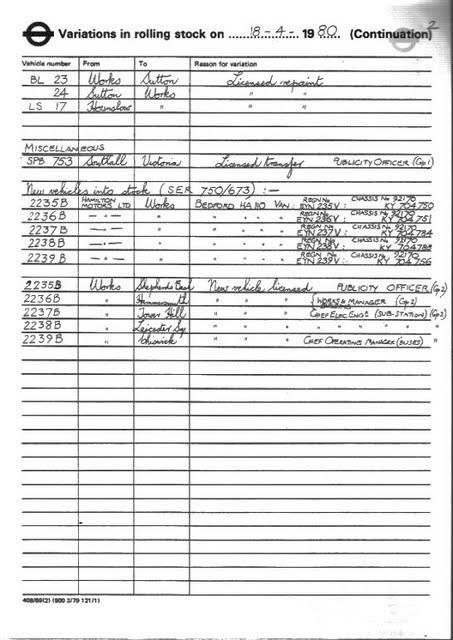 2
Variations in rolling stock on 18-4- 1980. (Continuation)
Vehicle number From To Reason for variation
BL 23 Works Sutton Licensed repaint
24 Sutton Works " "
LS 17 Hounslow " " "
MISCELLANEOUS
SPB 753 Southall Victoria Licensed transfer PUBLICITY OFFICER (Gp 1)
New vehicles into stock (SER 750/673) :—
2235B HAMILTON MOTORS LTD Works BEDFORD HA110 VAN: REGN No EYN 235V : CHASSIS No 92170 KY 704750
2236B —"— " " " " REGN No EYN 236V : CHASSIS No 92170 KY 704751
2237B —"— " " " " REGN No EYN 237V : CHASSIS No 92170 KY 704784
2238B —"— " " " " REGN No EYN 238V : CHASSIS No 92170 KY 704788
2239B —"— " " " " REGN No EYN 239V : CHASSIS No 92170 KY 704756
2235B Works Shepherds Bush New vehicle licensed PUBLICITY OFFICER (Gp 2)
2236B " Hammersmith " " " WORKS MANAGER (Gp 2)
2237B " Tower Hill " " " CHIEF ELEC ENGR (SUB-STATION) (Gp 2)
2238B " Leicester Sq " " " " " " "
2239B " Chiswick " " " CHIEF OPERATING MANAGER (BUSES) "
408/69(2) (500 3/79 121/1)